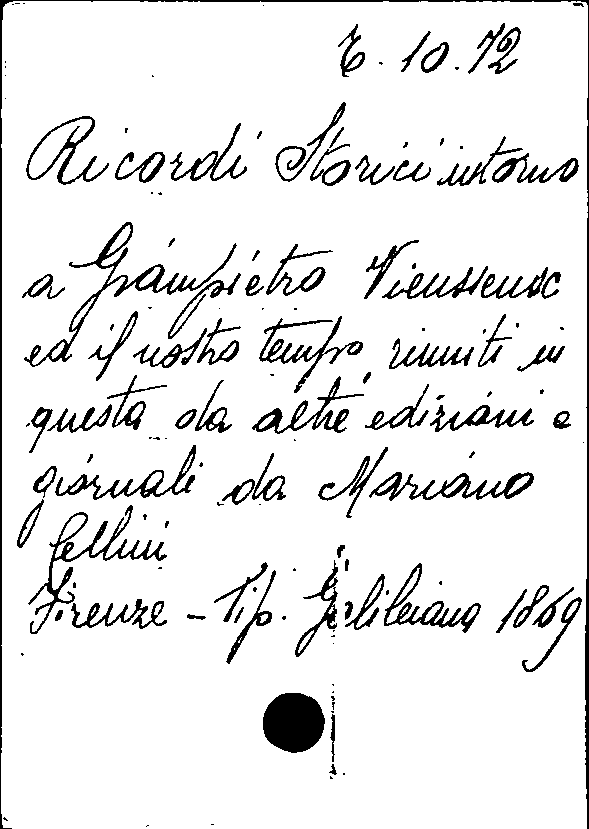 E. 10. 72
Ricordi Storici intorno
a Giampietro Vieusseux
ed il nostro tempo, riuniti in
questa da altre edizioni e
giornali da Mariano
Cellini
Firenze - Tip. Galileiana 1869